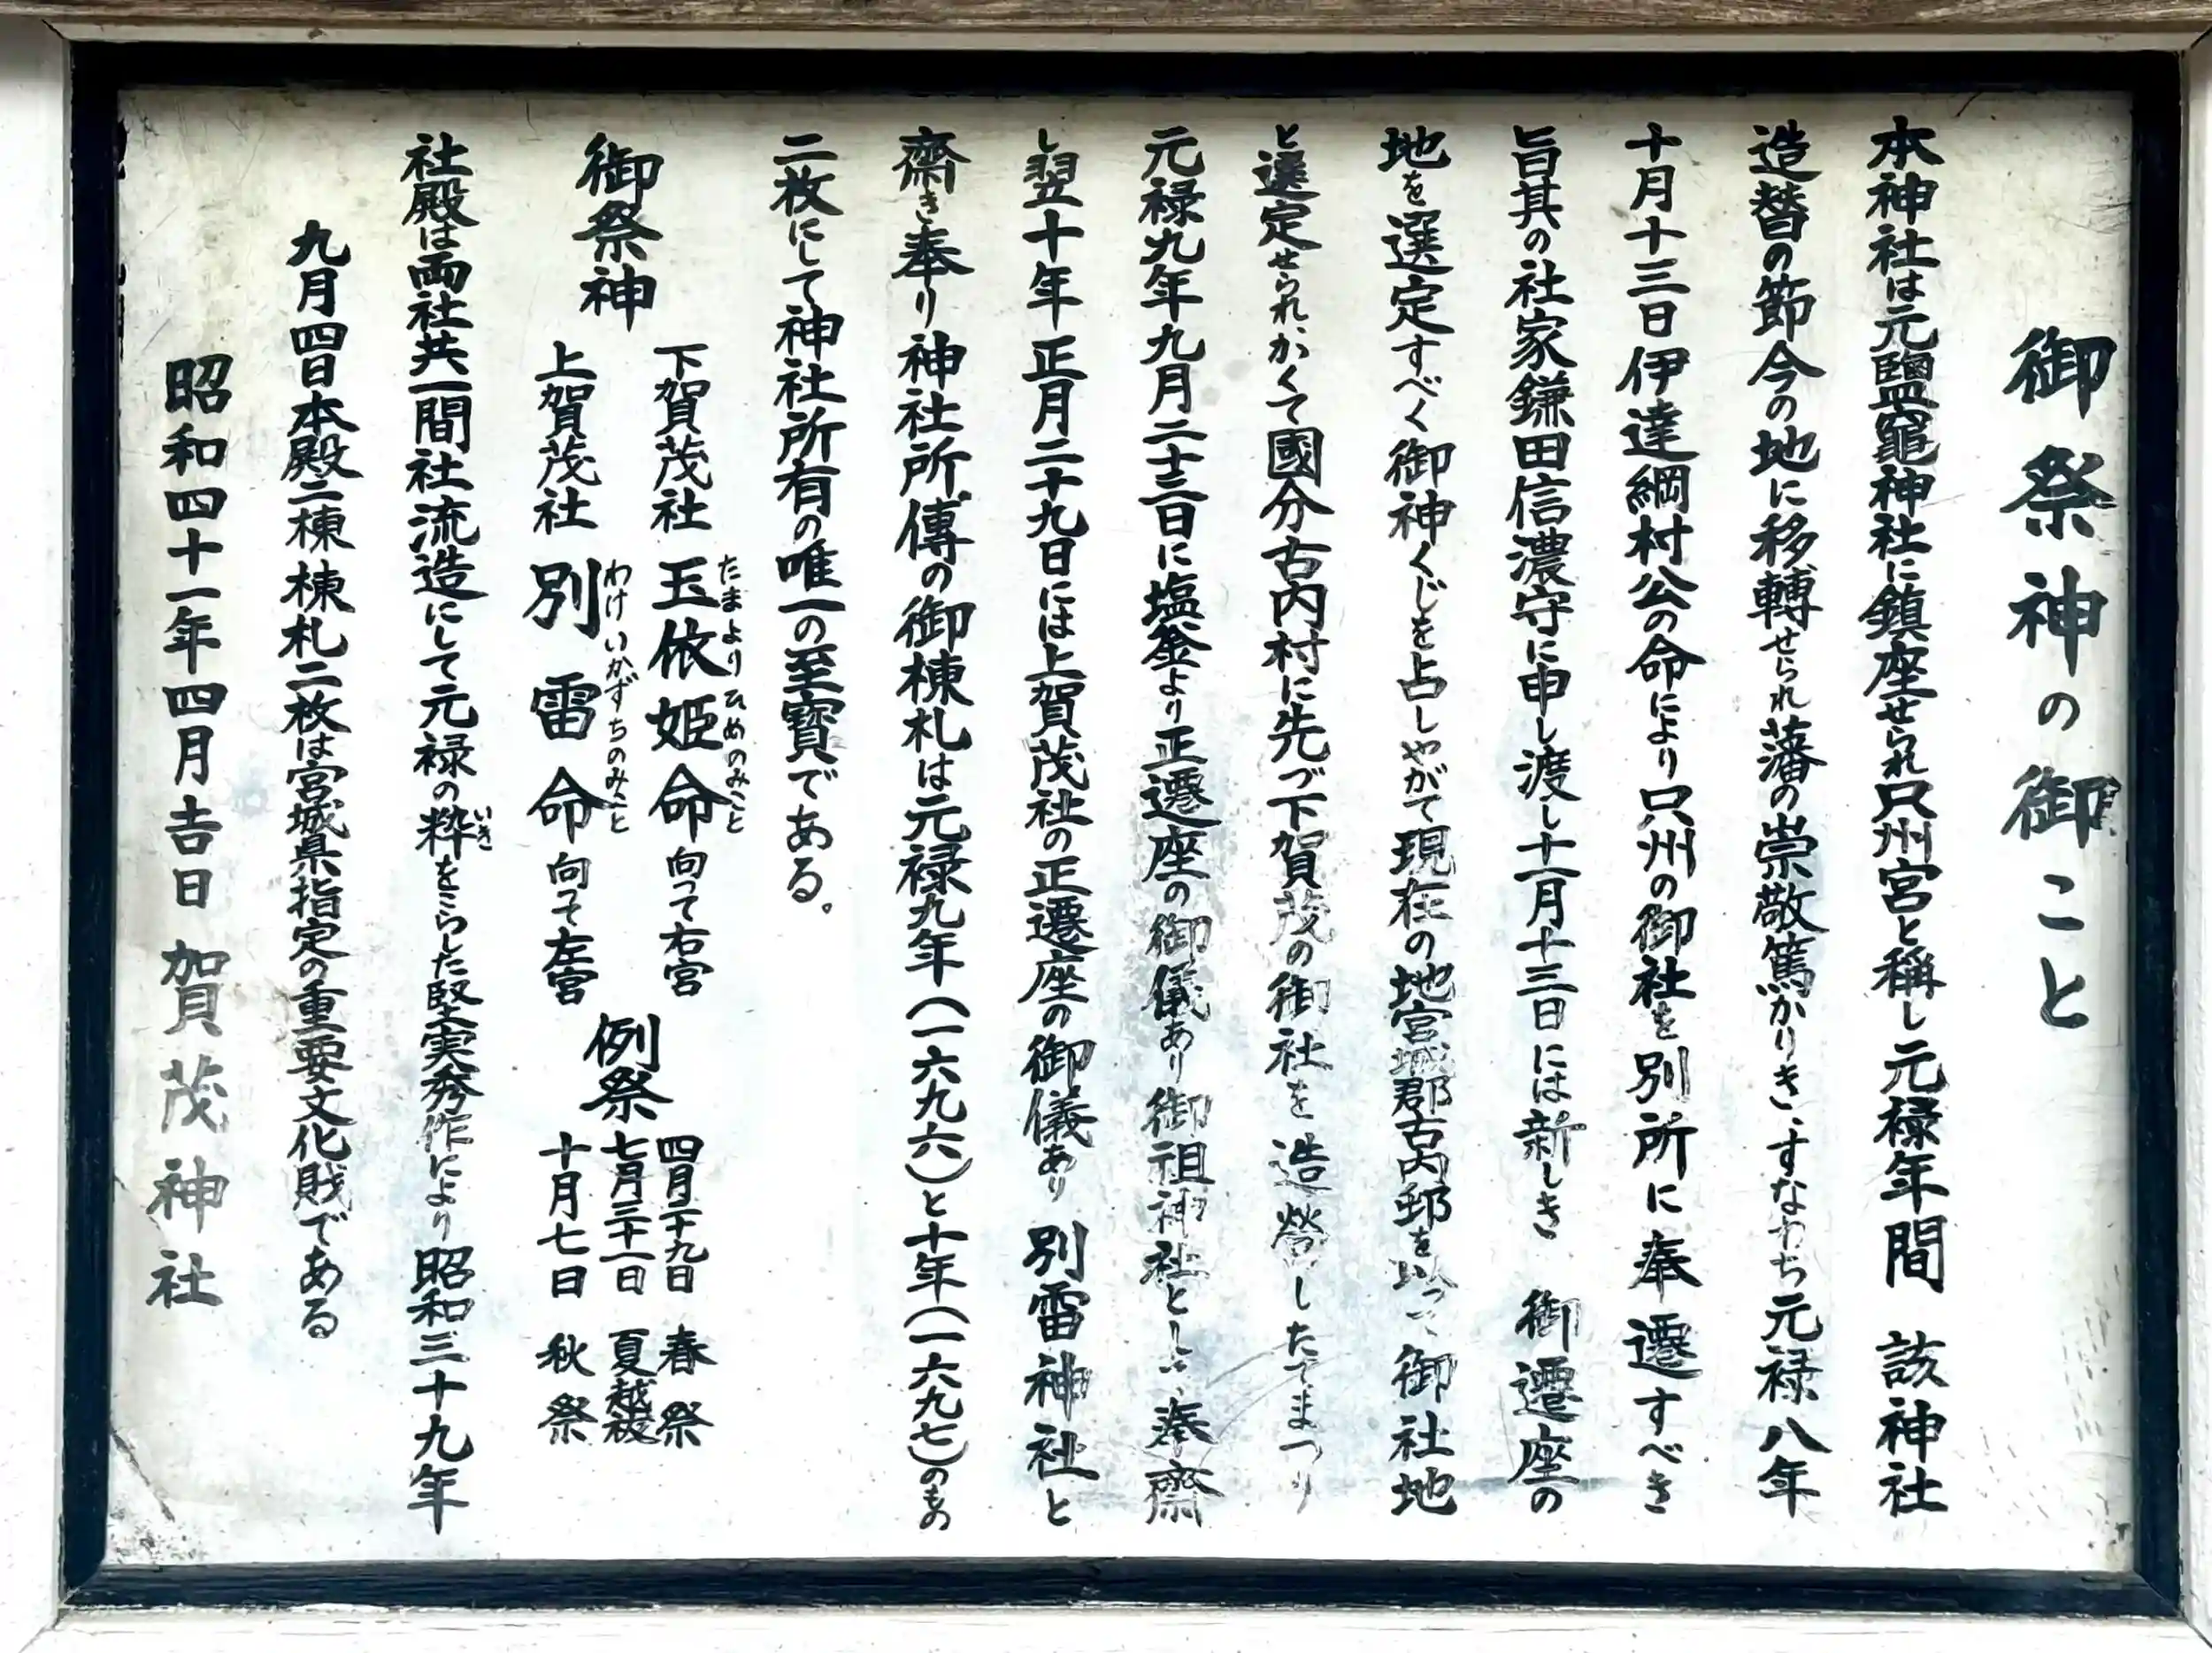 御祭神の御こと
本神社は元鹽竈神社に鎮座せられ只州宮と稱し元禄年間 該神社
造替の節今の地に移轉せられ藩の崇敬篤かりき、すなわち元禄八年
十月十三日伊達綱村公の命により只州の御社を別所に奉遷すべき
旨其の社家鎌田信濃守に申し渡し十一月十三日には新しき 御遷座の
地を選定すべく御神くじを占しやがて現在の地宮城郡古内邨を以って御社地
と選定せられかくて國分古内村に先づ下賀茂の御社を造營したてまつり
元禄九年九月二十三日に塩釜より正遷座の御儀あり御祖神社とし奉齋
し翌十年正月二十九日には上賀茂社の正遷座の御儀あり 別雷神社と
齋き奉り神社所傳の御棟札は元禄九年(一六九六)と十年(一六九七)のもの
二枚にして神社所有の唯一の至寶である。
御祭神
下賀茂社 玉依姫命 向って右宮
たまよりひめのみこと
上賀茂社 別雷命 向って左宮
わけいかずちのみこと
例祭
四月二十九日 春祭
七月三十一日 夏越祓
十月七日 秋祭
社殿は両社共一間社流造にして元禄の粋をこらした堅実秀作により昭和三十九年
いき
九月四日本殿二棟 棟札二枚は宮城県指定の重要文化財である
昭和四十一年四月吉日 賀茂神社